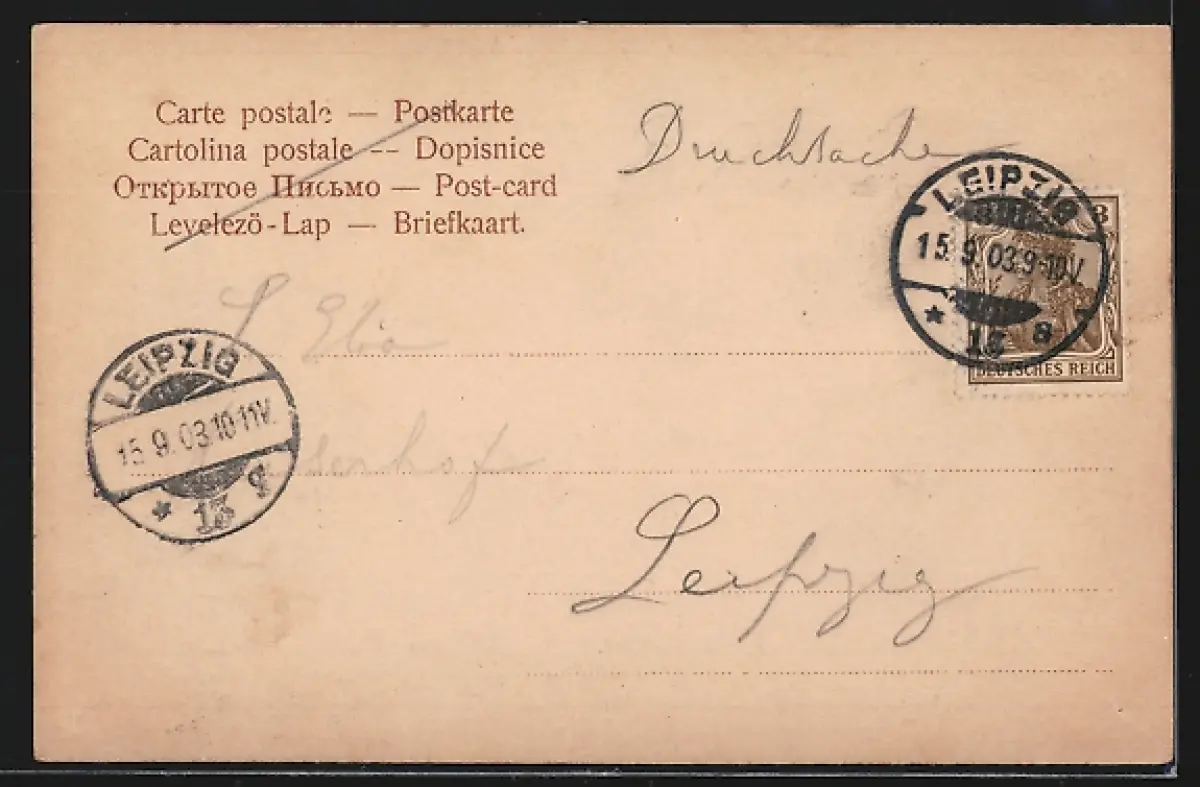 Carte postale — Postkarte
Cartolina postale -- Dopisnice
Открытое Письмо — Post-card
Levelező-Lap — Briefkaart.
Drucksache
LEIPZIG
15.9.03.9-10V.
* 13 a
3
DEUTSCHES REICH
LEIPZIG
15.9.03.10-11V.
* 13
Leipzig